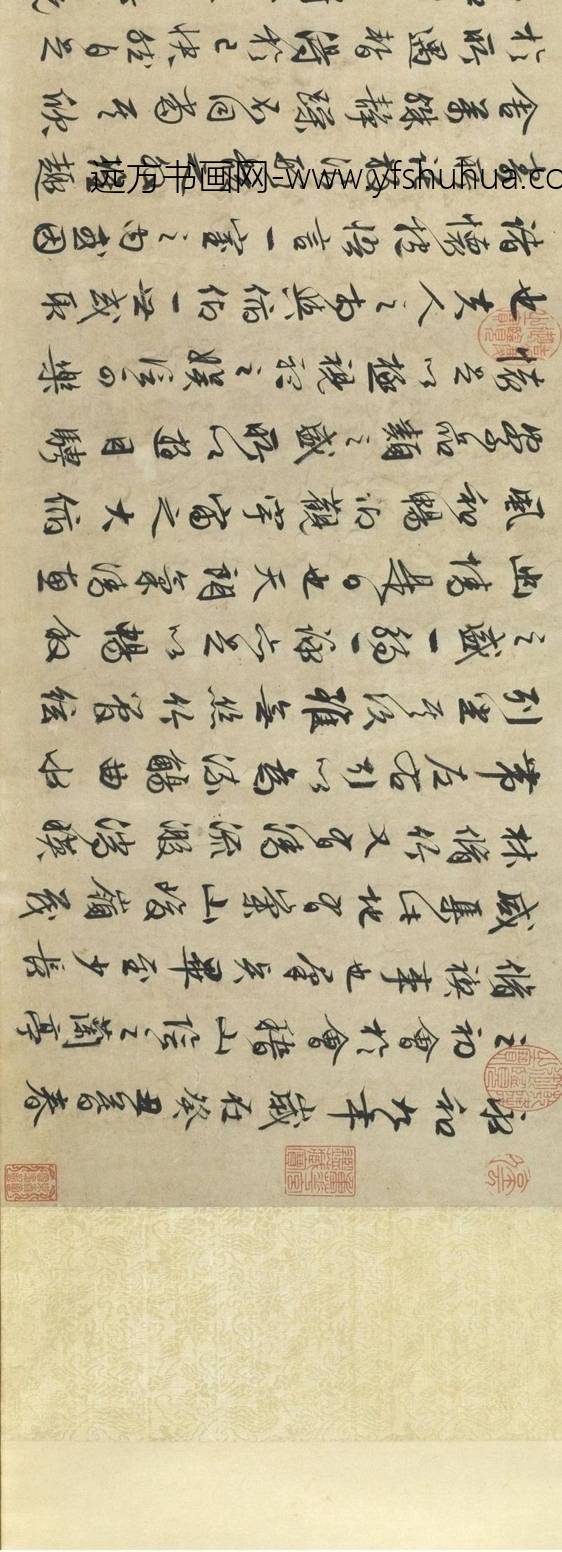 永和九年歲在癸丑暮春
之初會於會稽山陰之蘭亭
脩禊事也羣賢畢至少長
咸集此地有崇山峻嶺茂
林脩竹又有清流激湍暎
帶左右引以為流觴曲水
列坐其次雖無絲竹管絃
之盛一觴一詠亦足以暢敘
幽情是日也天朗氣清惠
風和暢仰觀宇宙之大俯
察品類之盛所以遊目騁
懷足以極視聽之娛信可樂
也夫人之相與俯仰一世或取
諸懷抱悟言一室之內或因
寄所託放浪形骸之外雖趣
舍萬殊靜躁不同當其欣
於所遇暫得於己快然自足
远方书画网-www.yfshuhua.co